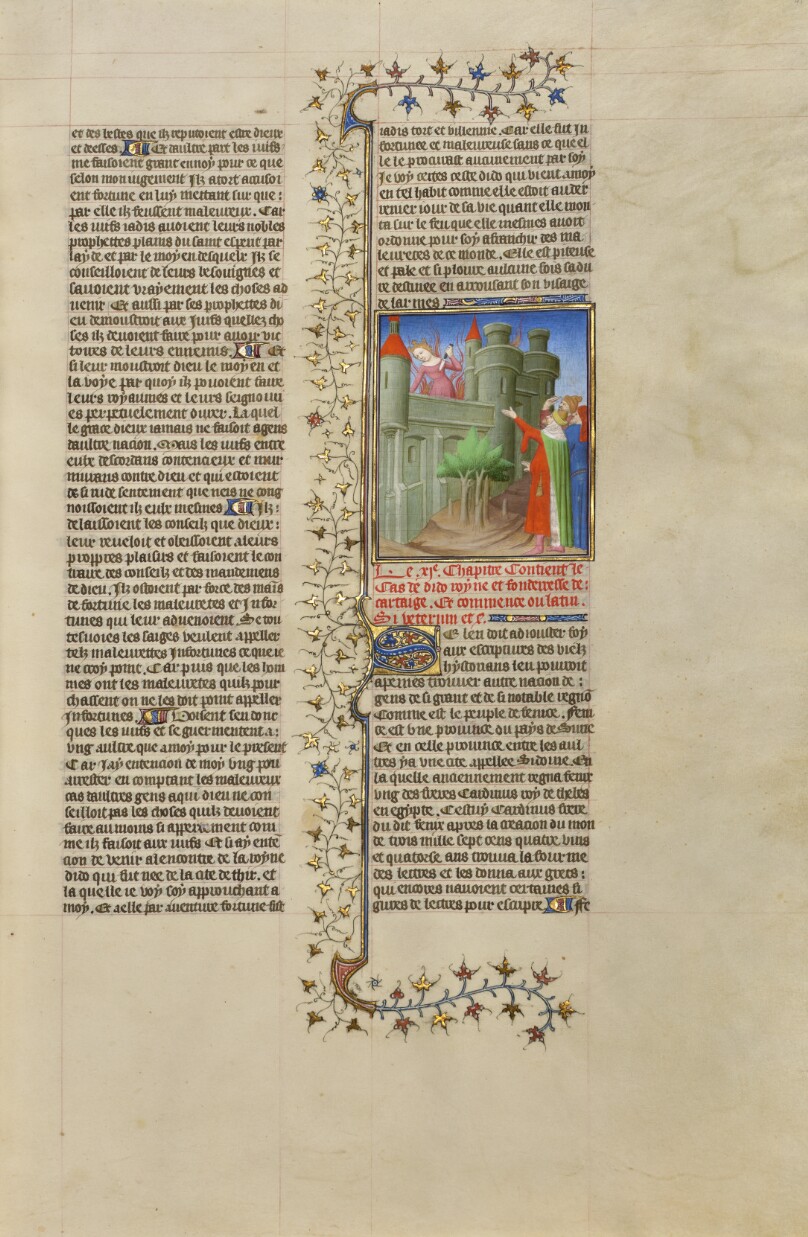 et des bestes que ilz reputoient estre dieux
et deesses. Et daultre part les iuifs
me faisoient grant ennoy pour ce que
selon mon iugement Ilz a tort accusoi
ent fortune en luy mettant sur que :
par elle ilz feussent maleureux. Car
les iuifs iadis auoient leurs nobles
prophettes plains du saint esperit par
layde et par le moyen desquelz Ilz se
conseilloient de leurs besoignes et
sauoient vrayement les choses ad
uenir Et aussi par ses prophettes di
eu demoustroit aux Iuifs quelles cho
ses ilz deuoient faire pour auoir vic
toires de leurs ennemis. Et
si leur moustroit dieu le moyen et
la voye par quoy ilz pouoient faire
leurs royaumes et leurs seignouri
es perpetuelement durer. La quel
le grace dieux iamais ne faisoit a gens
daultre nacion. Mais les iuifs entre
eulx descordans contencieux et mur
murans contre dieu et qui estoient
de si rude sentement que neis ne cong
noissoient ilz eulx mesmes Ilz :
delaissoient les conseilz que dieux :
leur reueloit et obeissoient a leurs
propres plaisirs et faisoient le con
traire des conseilz et des mandemens
de dieu. Ilz ostoient par force des mais
de fortune les maleuretes et Infor
tunes qui leur aduenoient. Se tou
tesuoies les saiges veulent appeller
telz maleuretes Infortunes ce que ie
ne croy point. Car puis que les hom
mes ont les maleuretes quilz pour
chassent on ne les doit point appeller
Infortunes. Voisent sen donc
ques les iuifs et se guermentent a :
vng aultre que a moy pour le present
Car Iay entencion de moy vng pou
arrester en comptant les maleureux
cas daultres gens a qui dieu ne con
seilloit pas les choses quilz deuoient
faire au moins si apertement com
me il faisoit aux iuifs Et si ay enten
cion de venir alencontre de la royne
dido qui fut nee de la cite de thir. et
la quelle ie voy soy approuchant a
moy. Et a elle par auenture fortune fist
iadis tort et villennie. Car elle fut In
fortunee et maleureuse sans ce que el
le le procurast aucunement par soy.
Je voy certes ceste dido qui vient a moy
en tel habit comme elle estoit au der
renier iour de sa vie quant elle mon
ta sur le feu que elle mesmes auoit
ordonne pour soy afranchir des ma
leuretes de ce monde. Elle est piteuse
et pale et si pleure aulcune fois sa du
re destinee en arrousant son visaige
de larmes
Le .xie. Chapitre Contient le
Cas de dido royne et fonderesse de :
cartaige. Et commence ou latin.
Si veterum etc.
Se len doit adiouster foy
aux escriptures des vielz
hystorians len pourroit
a peines trouuer autre nacion de :
gens de si grant et de si notable regnon
Comme est le peuple de fenice. Feni
ce est vne prouince du pays de Surie
Et en celle prouince entre les aul
tres ya vne cite appellee Sidoine. En
la quelle anciennement regna fenix
vng des freres Cardinus roy de thebes
en egypte. Cestuy Cardinus frere
du dit fenix apres la creacion du mon
de trois mille sept cens quatre vins
et quatorse ans trouua la fourme
des lectres et les donna aux grecs :
qui encores nauoient certaines fi
gures de lectres pour escripre Fe